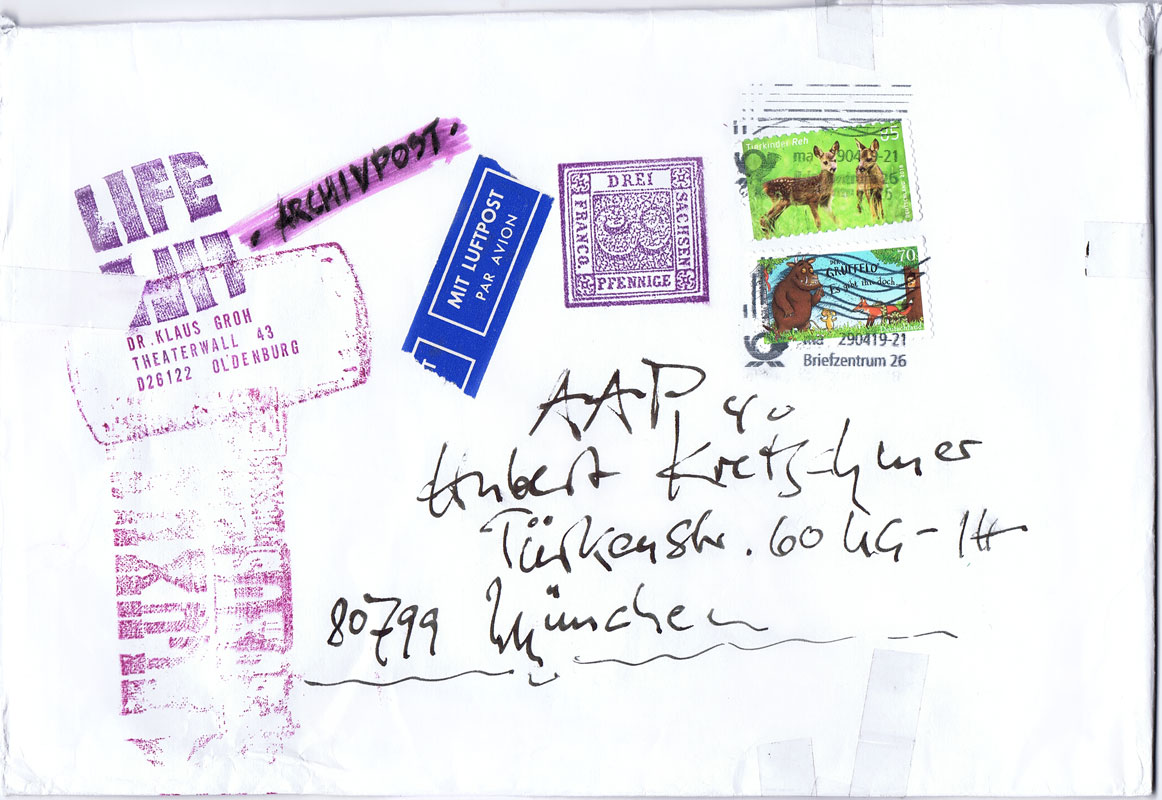 LIFE
• ARCHIVPOST •
DR.KLAUS GROH
THEATERWALL 43
D26122 OLDENBURG
MIT LUFTPOST
PAR AVION
DREI
FRANCO.
SACHSEN
3
PFENNIGE
Tierkinder Reh
85
ma 290419-21
Briefzentrum 26
70
DER
GRÜFFELO
Es gibt ihn doch
Deutschland
ma 290419-21
Briefzentrum 26
AAP
Hubert Kretschmer
Türkenstr. 60 UG-1
80799 München